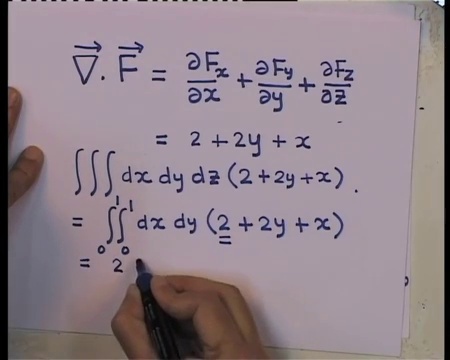 ∇⃗ . F⃗ = ∂Fx/∂x + ∂Fy/∂y + ∂Fz/∂z
= 2 + 2y + x
∫∫∫ dx dy dz (2 + 2y + x) .
= ∫₀¹ ∫₀¹ dx dy (2 + 2y + x)
= 2